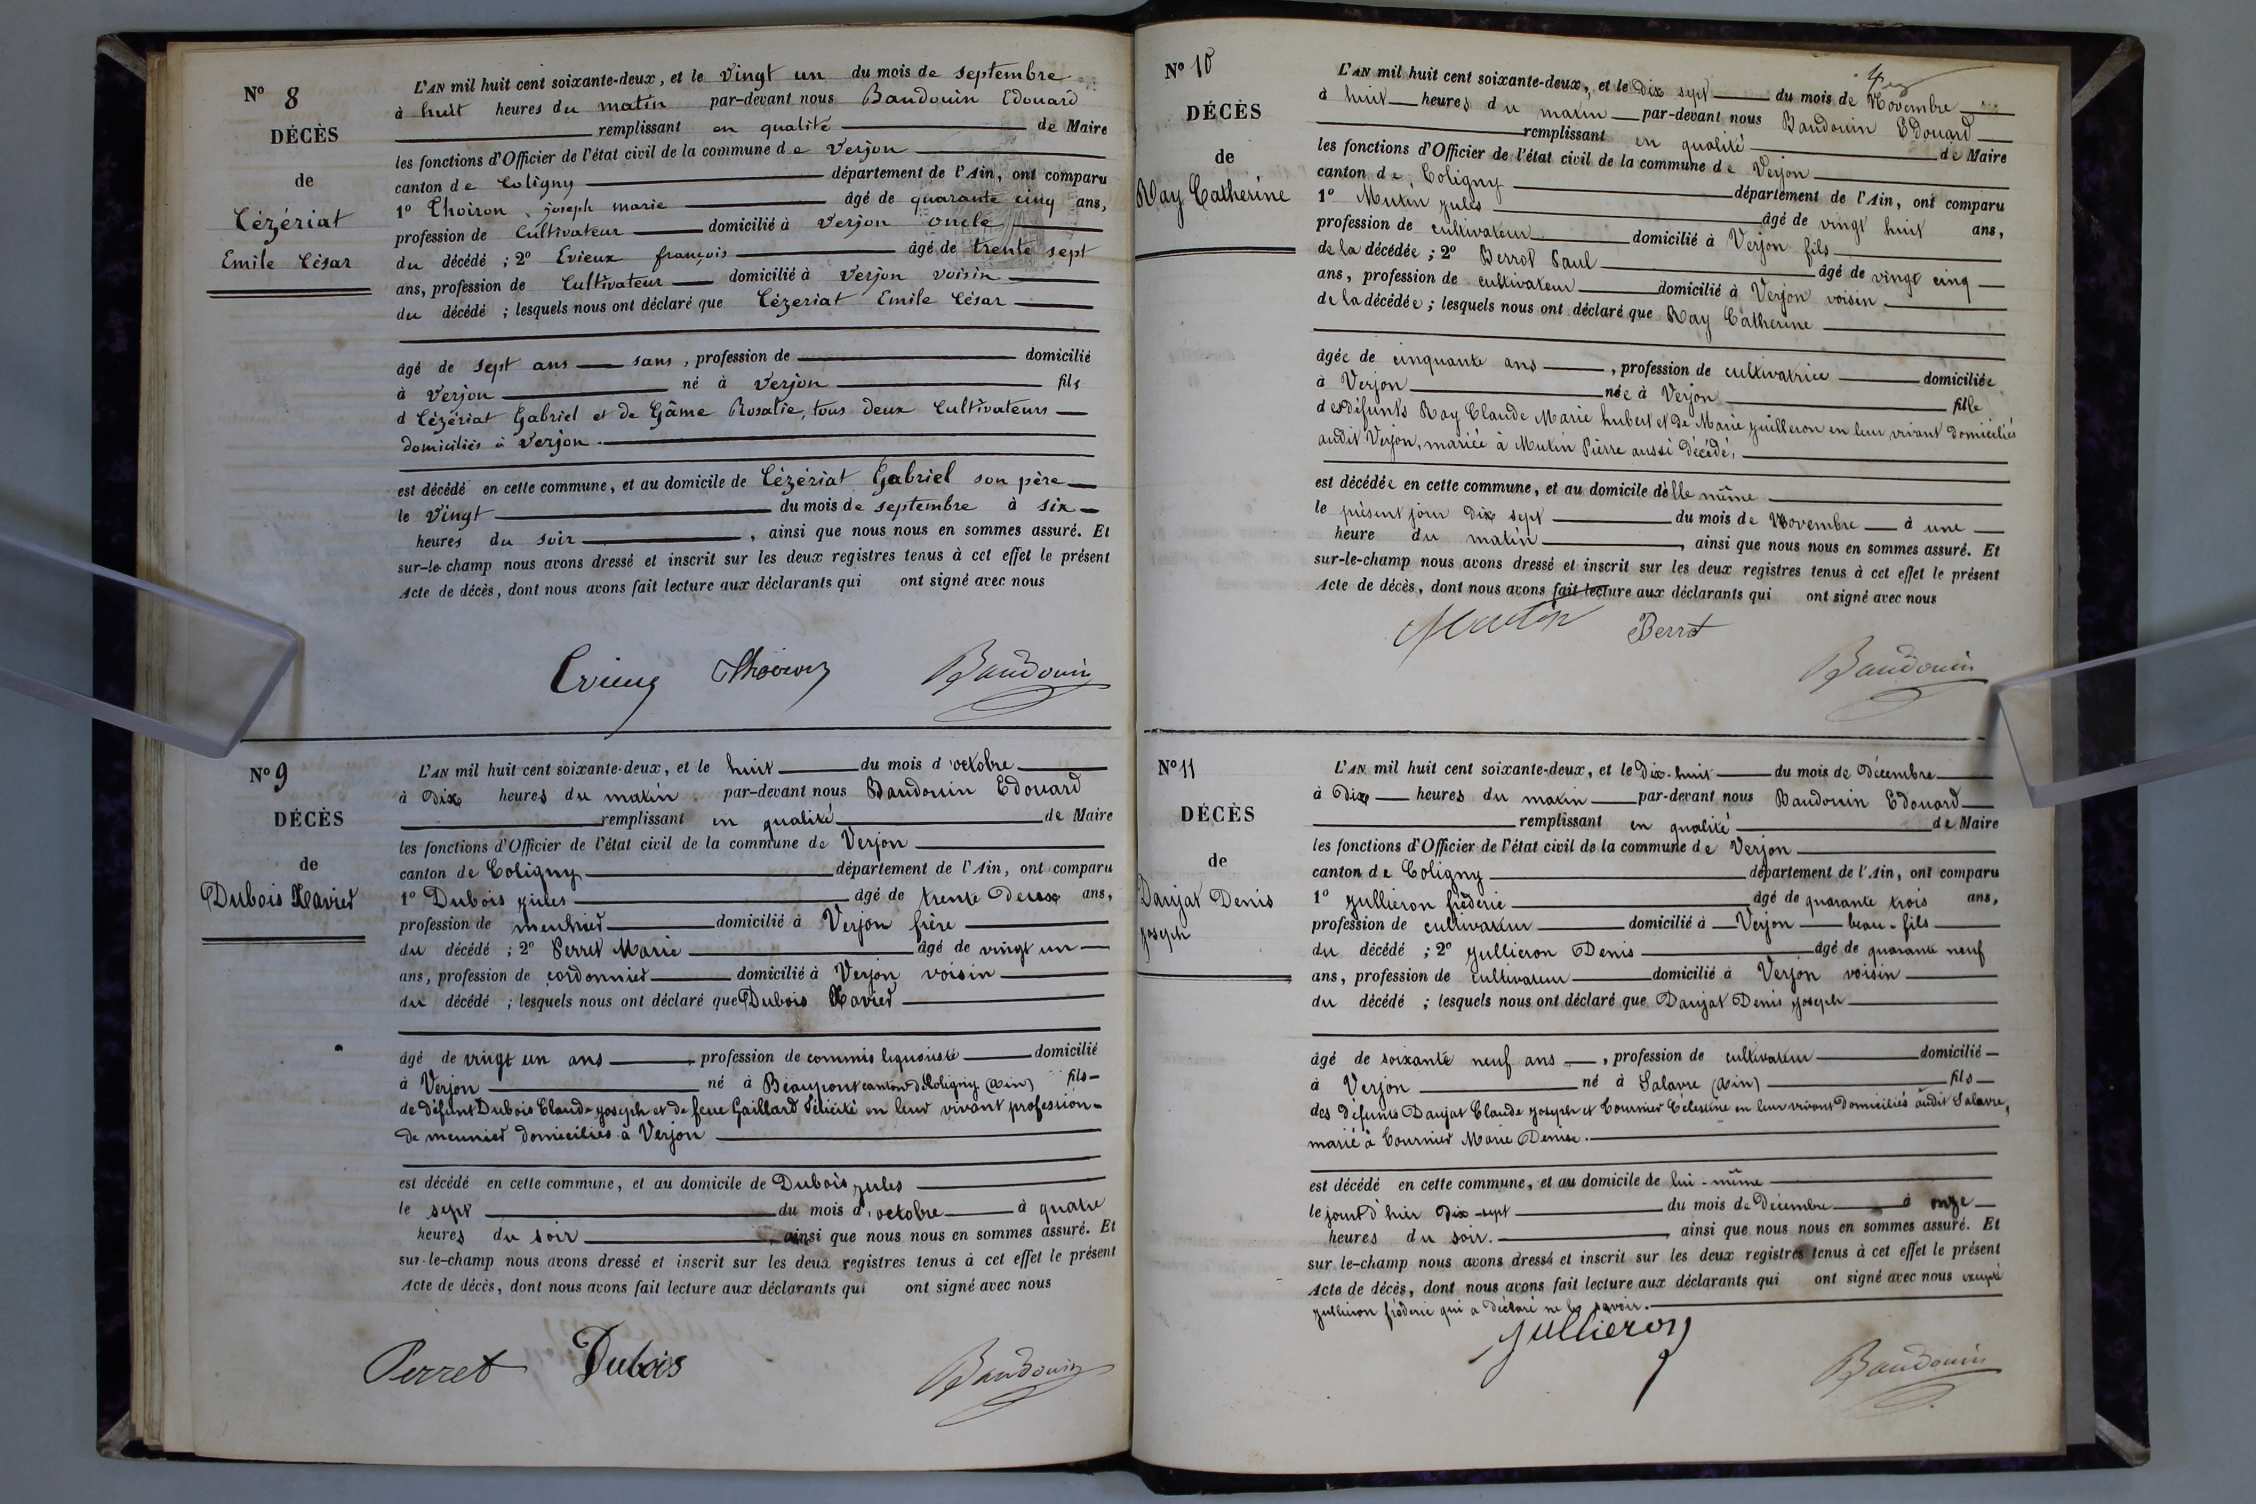 N° 8
DÉCÈS
de
Cézériat
Emile César
L'AN mil huit cent soixante-deux, et le vingt un du mois de septembre
à huit heures du matin par-devant nous Baudouin Edouard
remplissant en qualité de Maire
les fonctions d'Officier de l'état civil de la commune de Verjon
canton de Coligny département de l'Ain, ont comparu
1° Thoiron joseph marie âgé de quarante cinq ans,
profession de Cultivateur domicilié à Verjon oncle
du décédé ; 2° Evieux françois âgé de trente sept
ans, profession de Cultivateur domicilié à Verjon voisin
du décédé ; lesquels nous ont déclaré que Cézeriat Emile César
âgé de sept ans sans, profession de domicilié
à Verjon né à Verjon fils
d Cézériat Gabriel et de Gâme Rosalie, tous deux Cultivateurs
domiciliés à Verjon.
est décédé en cette commune, et au domicile de Cézériat Gabriel son père
le vingt du mois de septembre à six
heures du soir, ainsi que nous nous en sommes assuré. Et
sur-le-champ nous avons dressé et inscrit sur les deux registres tenus à cet effet le présent
Acte de décès, dont nous avons fait lecture aux déclarants qui ont signé avec nous
Evieux Thoiron Baudouin
N° 9
DÉCÈS
de
Dubois Xavier
L'AN mil huit cent soixante-deux, et le huit du mois d'octobre
à Dix heures du matin par-devant nous Baudouin Edouard
remplissant en qualité de Maire
les fonctions d'Officier de l'état civil de la commune de Verjon
canton de Coligny département de l'Ain, ont comparu
1° Dubois jules âgé de trente Deux ans,
profession de meunier domicilié à Verjon frère
du décédé ; 2° Perret Marie âgé de vingt un
ans, profession de cordonnier domicilié à Verjon voisin
du décédé ; lesquels nous ont déclaré que Dubois Xavier
âgé de vingt un ans, profession de commis liquoriste domicilié
à Verjon né à Beaupont canton de Coligny (Ain) fils
de défunt Dubois Claude joseph et de feue Gaillard Félicité en leur vivant profession
de meunier domiciliés à Verjon
est décédé en cette commune, et au domicile de Dubois jules
le sept du mois d'octobre à quatre
heures du soir, ainsi que nous nous en sommes assuré. Et
sur-le-champ nous avons dressé et inscrit sur les deux registres tenus à cet effet le présent
Acte de décès, dont nous avons fait lecture aux déclarants qui ont signé avec nous
Perret Dubois Baudouin
N° 10
DÉCÈS
de
Ray Catherine
L'AN mil huit cent soixante-deux, et le Dix sept du mois de Novembre
à huit heures du matin par-devant nous Baudouin Edouard
remplissant en qualité de Maire
les fonctions d'Officier de l'état civil de la commune de Verjon
canton de Coligny département de l'Ain, ont comparu
1° Mutin jules âgé de vingt huit ans,
profession de cultivateur domicilié à Verjon fils
de la décédée ; 2° Berrot Paul âgé de vingt cinq
ans, profession de cultivateur domicilié à Verjon voisin
de la décédée ; lesquels nous ont déclaré que Ray Catherine
âgée de cinquante ans, profession de cultivatrice domiciliée
à Verjon née à Verjon fille
des défunts Ray Claude Marie hubert et de Marie juilleron en leur vivant domiciliés
audit Verjon, mariée à Mutin Pierre aussi Décédé,
est décédée en cette commune, et au domicile d'elle même
le présent jour Dix sept du mois de Novembre à une
heure du matin, ainsi que nous nous en sommes assuré. Et
sur-le-champ nous avons dressé et inscrit sur les deux registres tenus à cet effet le présent
Acte de décès, dont nous avons fait lecture aux déclarants qui ont signé avec nous
Mutin Berrot
Baudouin
N° 11
DÉCÈS
de
Daujat Denis
joseph
L'AN mil huit cent soixante-deux, et le Dix-huit du mois de Décembre
à Dix heures du matin par-devant nous Baudouin Edouard
remplissant en qualité de Maire
les fonctions d'Officier de l'état civil de la commune de Verjon
canton de Coligny département de l'Ain, ont comparu
1° jullieron fréderic âgé de quarante trois ans,
profession de cultivateur domicilié à Verjon beau-fils
du décédé ; 2° jullieron Denis âgé de quarante neuf
ans, profession de cultivateur domicilié à Verjon voisin
du décédé ; lesquels nous ont déclaré que Daujat Denis joseph
âgé de soixante neuf ans, profession de cultivateur domicilié
à Verjon né à Salavre (Ain) fils
des défunts Daujat Claude joseph et Cournier Célestine en leur vivant Domiciliés audit Salavre,
marié à Cournier Marie Denise.
est décédé en cette commune, et au domicile de lui-même
le jour d'hier Dix-sept du mois de Décembre à onze
heures du soir. ainsi que nous nous en sommes assuré. Et
sur le-champ nous avons dressé et inscrit sur les deux registres tenus à cet effet le présent
Acte de décès, dont nous avons fait lecture aux déclarants qui ont signé avec nous excepté
jullieron fréderic qui a déclaré ne le savoir.
jullieron
Baudouin